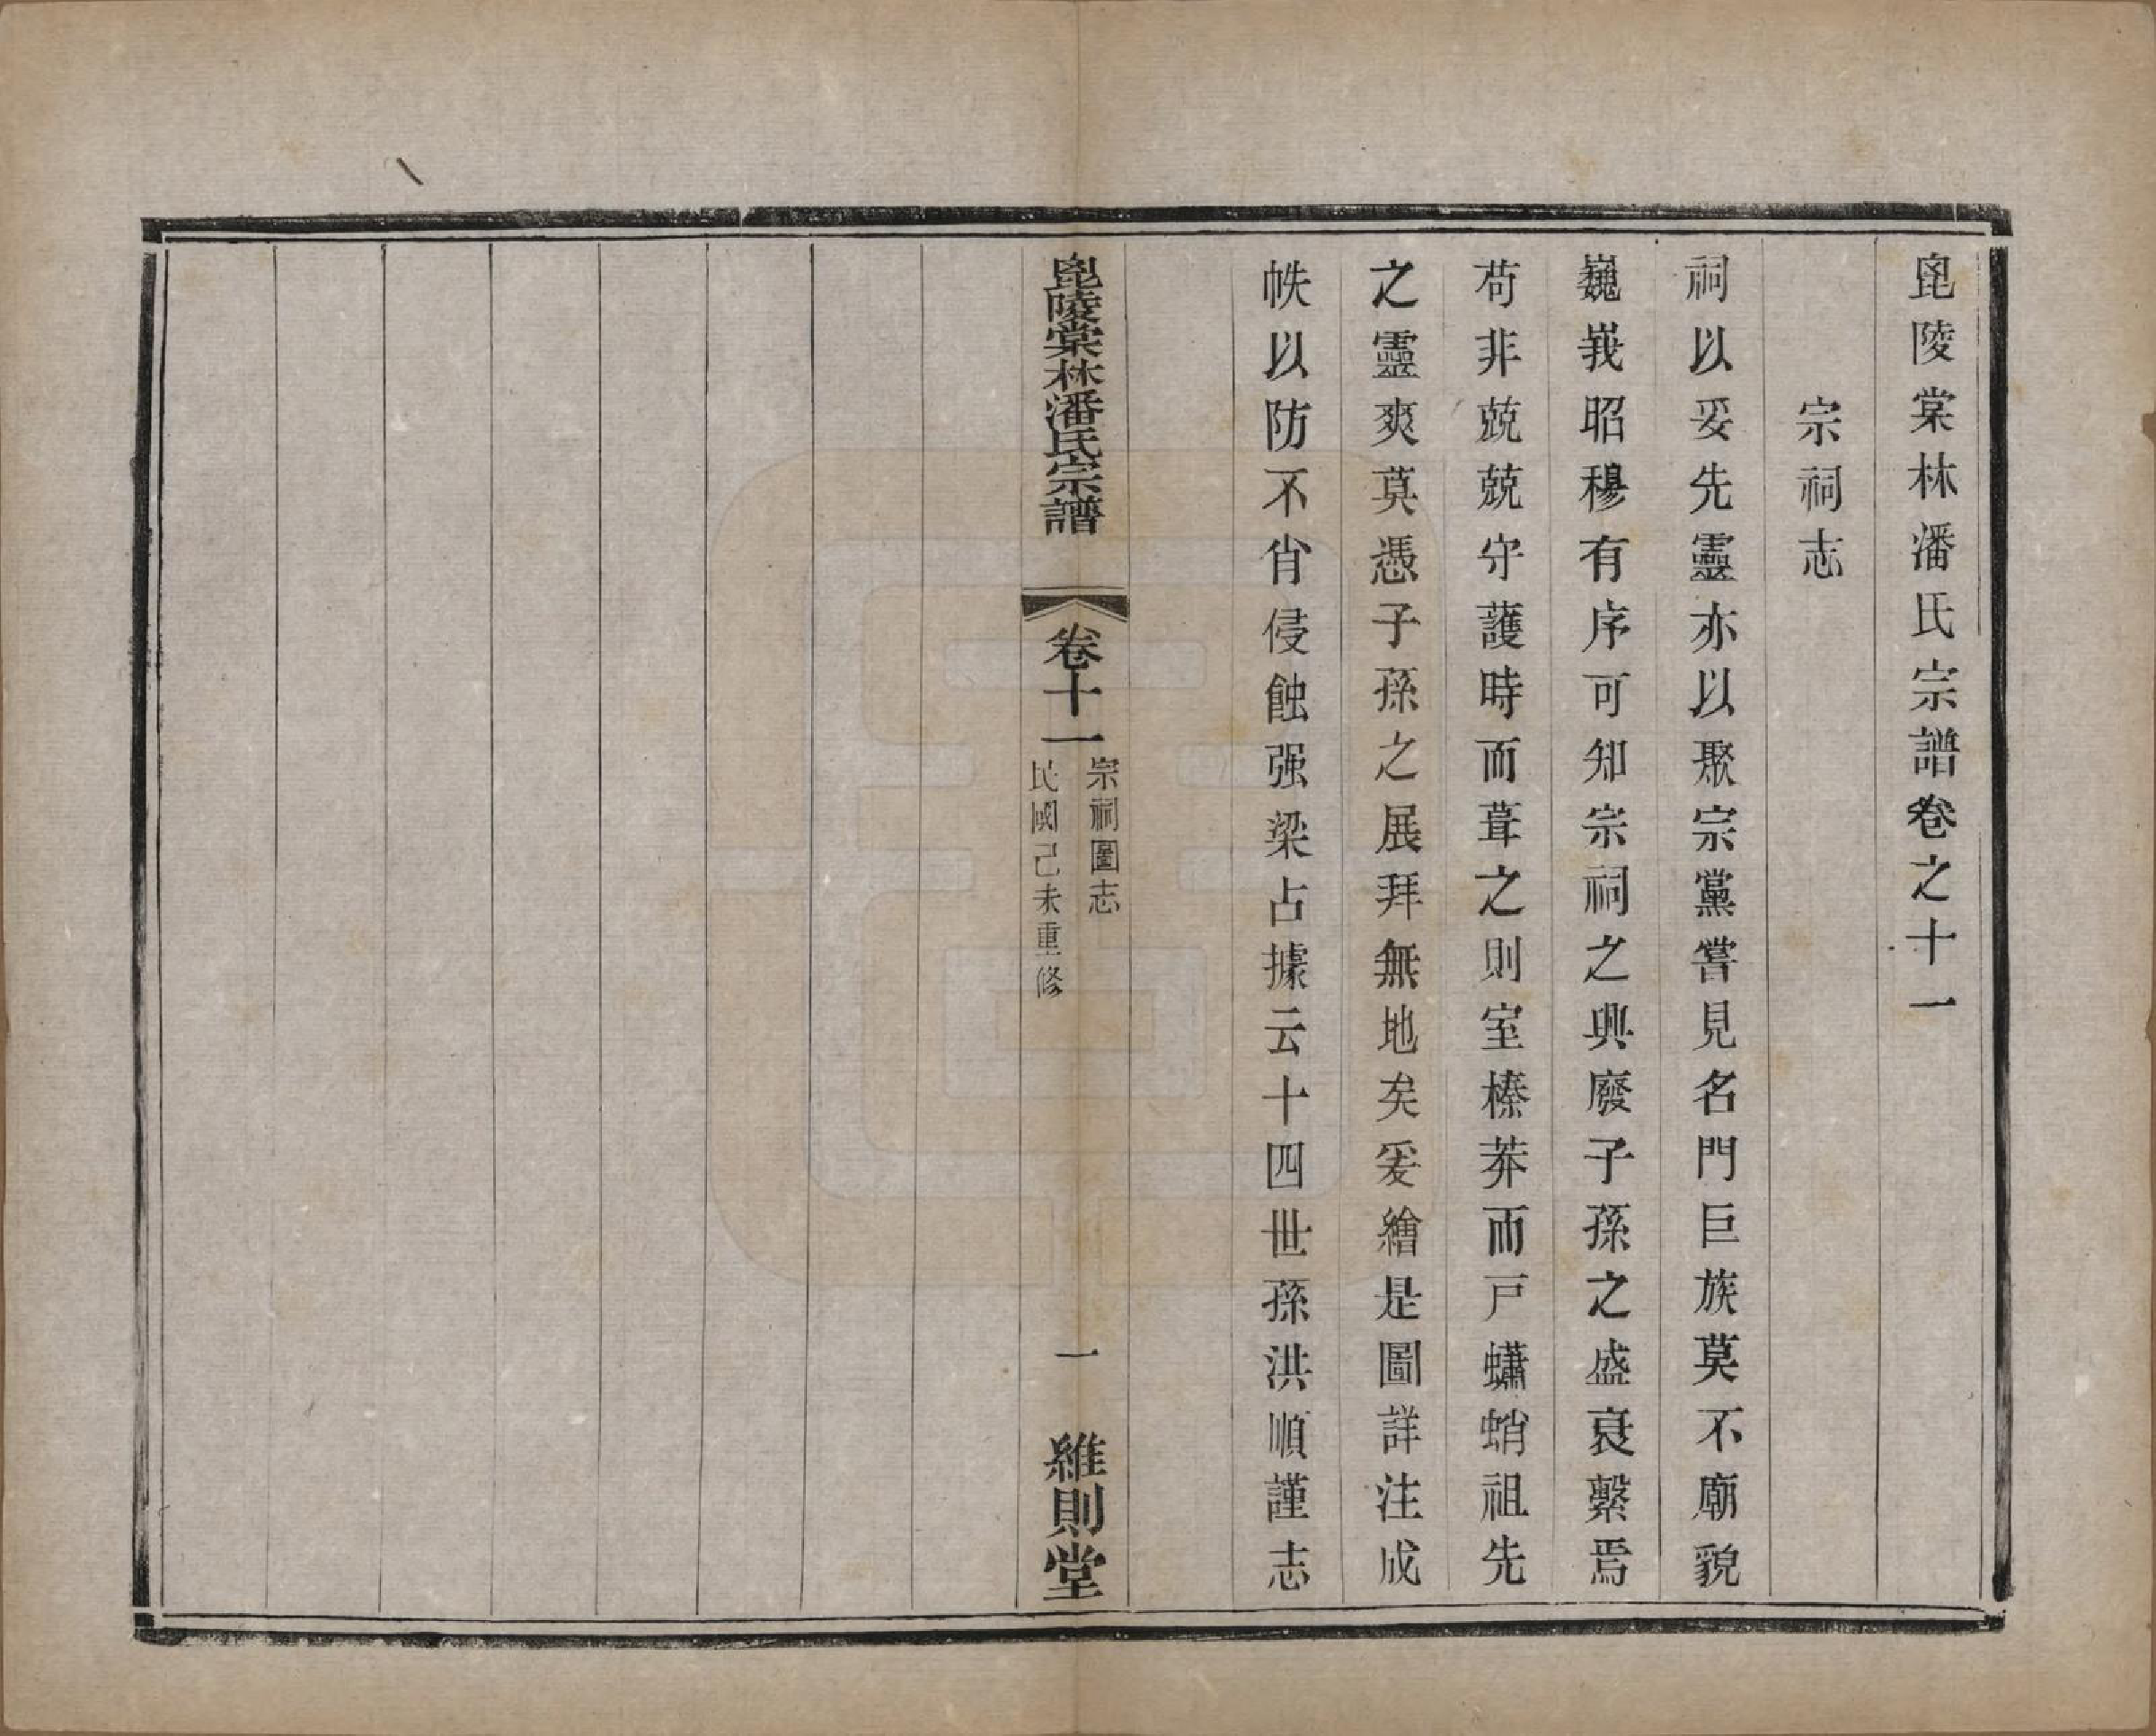 毘陵棠林潘氏宗譜卷之十一
宗祠志
祠以妥先靈亦以聚宗黨嘗見名門巨族莫不廟貌
巍峩昭穆有序可知宗祠之興廢子孫之盛衰繫焉
苟非兢兢守護時而葺之則室榛莽而戸蠨蛸祖先
之靈爽莫憑子孫之展拜無地矣爰繪是圖詳注成
帙以防不肖侵蝕强梁占據云十四世孫洪順謹志
毘陵棠林潘氏宗譜
卷十一
宗祠圖志
民國己未重修
一
維則堂